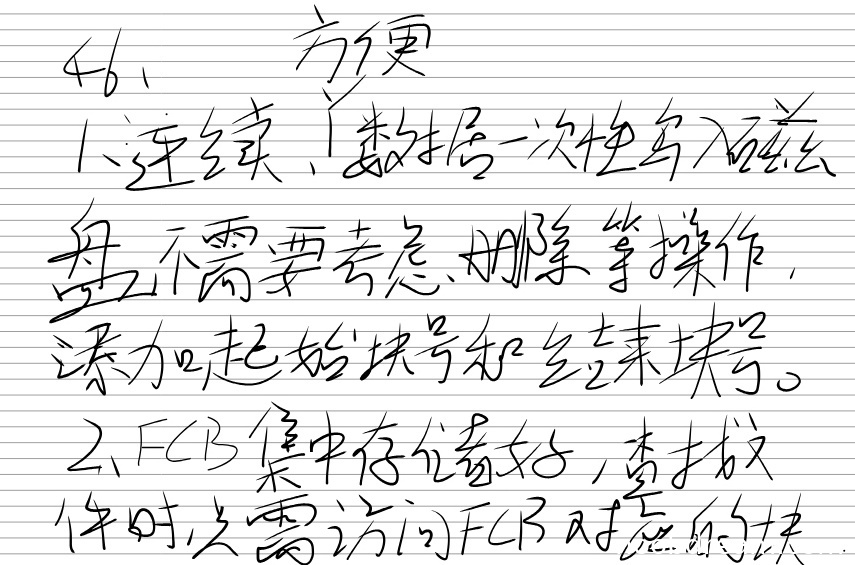 46、 方便
1、连续、丫数据一次性写入磁
盘,不需要考虑删除等操作,
添加起始块号和结束块号。
2、FCB集中存储好,查找文
件时只需访问FCB对应的块